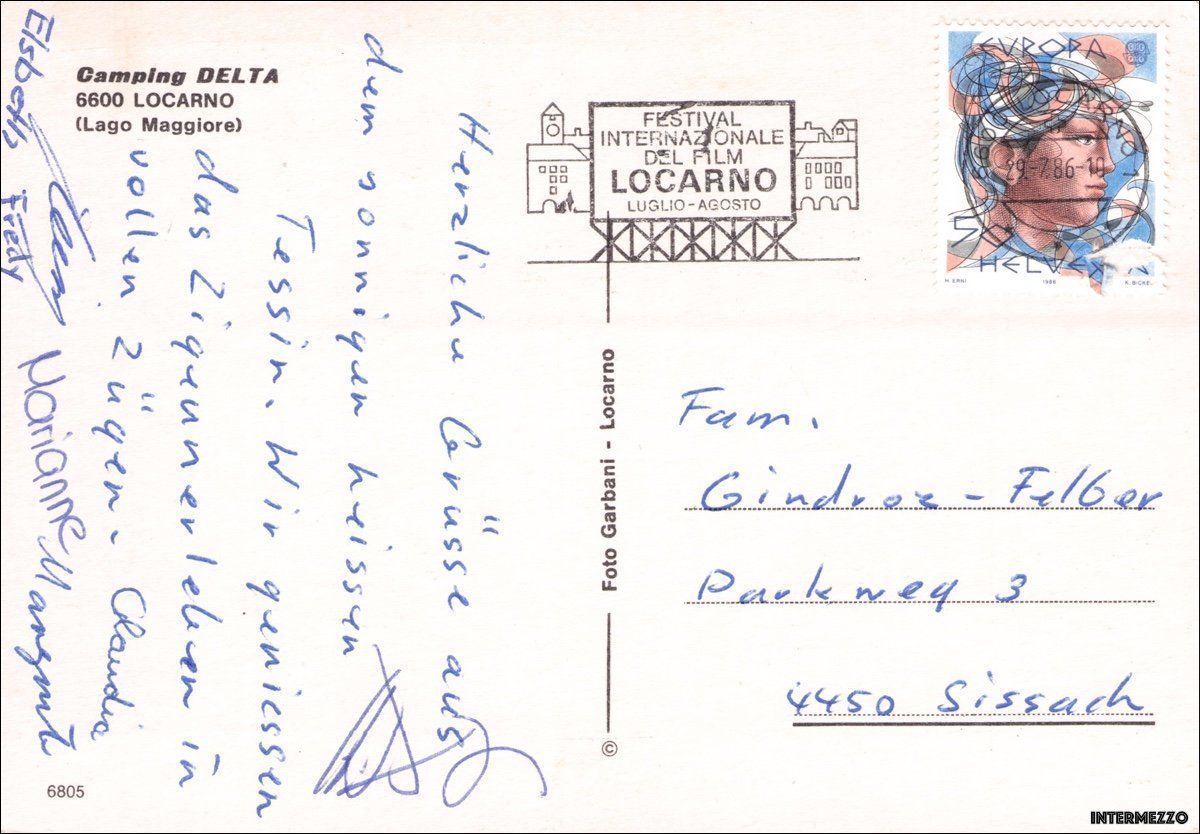 Camping DELTA
6600 LOCARNO
(Lago Maggiore)
Herzliche Grüsse aus
dem sonnigen heissen
Tessin. Wir geniessen
das Zigeunerleben in
vollen Zügen. Claudia
Marianne Margrit
Elsbeth Fredy
6805
Foto Garbani - Locarno
©
FESTIVAL
INTERNAZIONALE
DEL FILM
LOCARNO
LUGLIO-AGOSTO
EUROPA
29.-7.86-10
50
HELVE
H. ERNI 1986 K. BICKEL
Fam.
Gindroz - Felber
Parkweg 3
4450 Sissach
INTERMEZZO